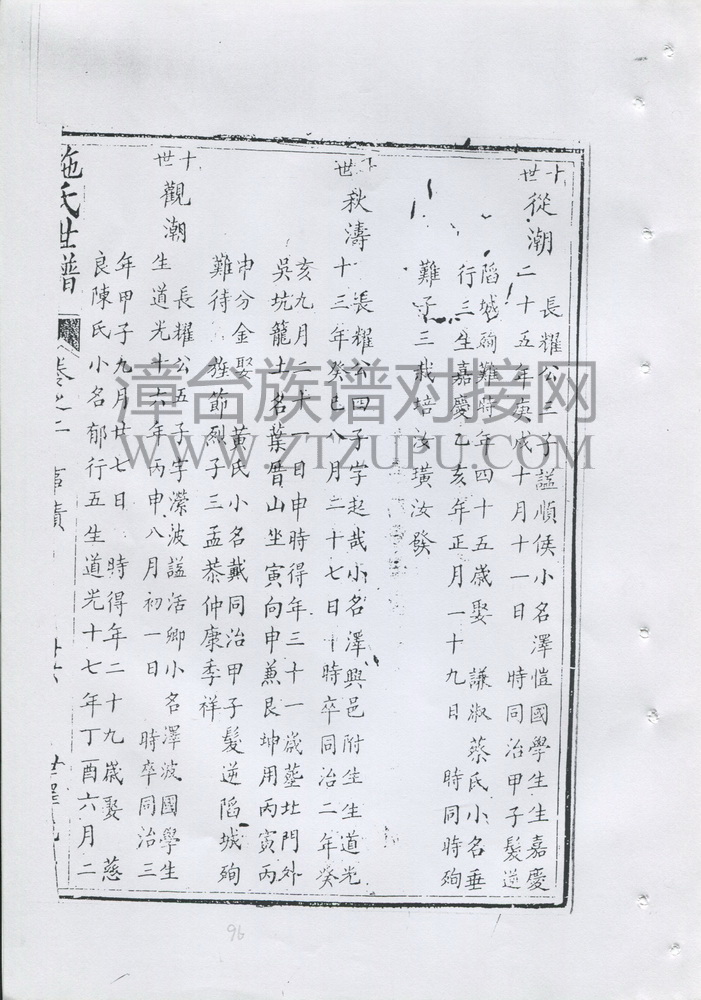 十世
從潮
長耀公三子謚順侯小名澤愷國學生生嘉慶
二十五年庚戌十月十一日 時同治甲子髮逆
陷城殉難時年四十五歲娶 謙淑蔡氏小名垂
行三生嘉慶乙亥年正月一十九日 時同時殉
難子三栽培汝璜汝發
十世
秋濤
長耀公四子字起哉小名澤興邑附生生道光
十三年癸巳八月二十七日 時卒同治二年癸
亥九月二十一日申時得年三十一歲塟北門外
吳坑籠土名葉厝山坐寅向申兼艮坤用丙寅丙
申分金娶 黃氏小名戴同治甲子髮逆陷城殉
難待旌節烈子三孟恭仲康季祥
十世
觀潮
長耀公五子字瀠波謚活卿小名澤波國學生
生道光十六年丙申八月初一日 時卒同治三
年甲子九月廿七日 時得年二十九歲娶 慈
良陳氏小名郁行五生道光十七年丁酉六月二
施氏世譜 卷之二 事蹟
漳台族谱对接网
WWW.ZTZUPU.COM
96